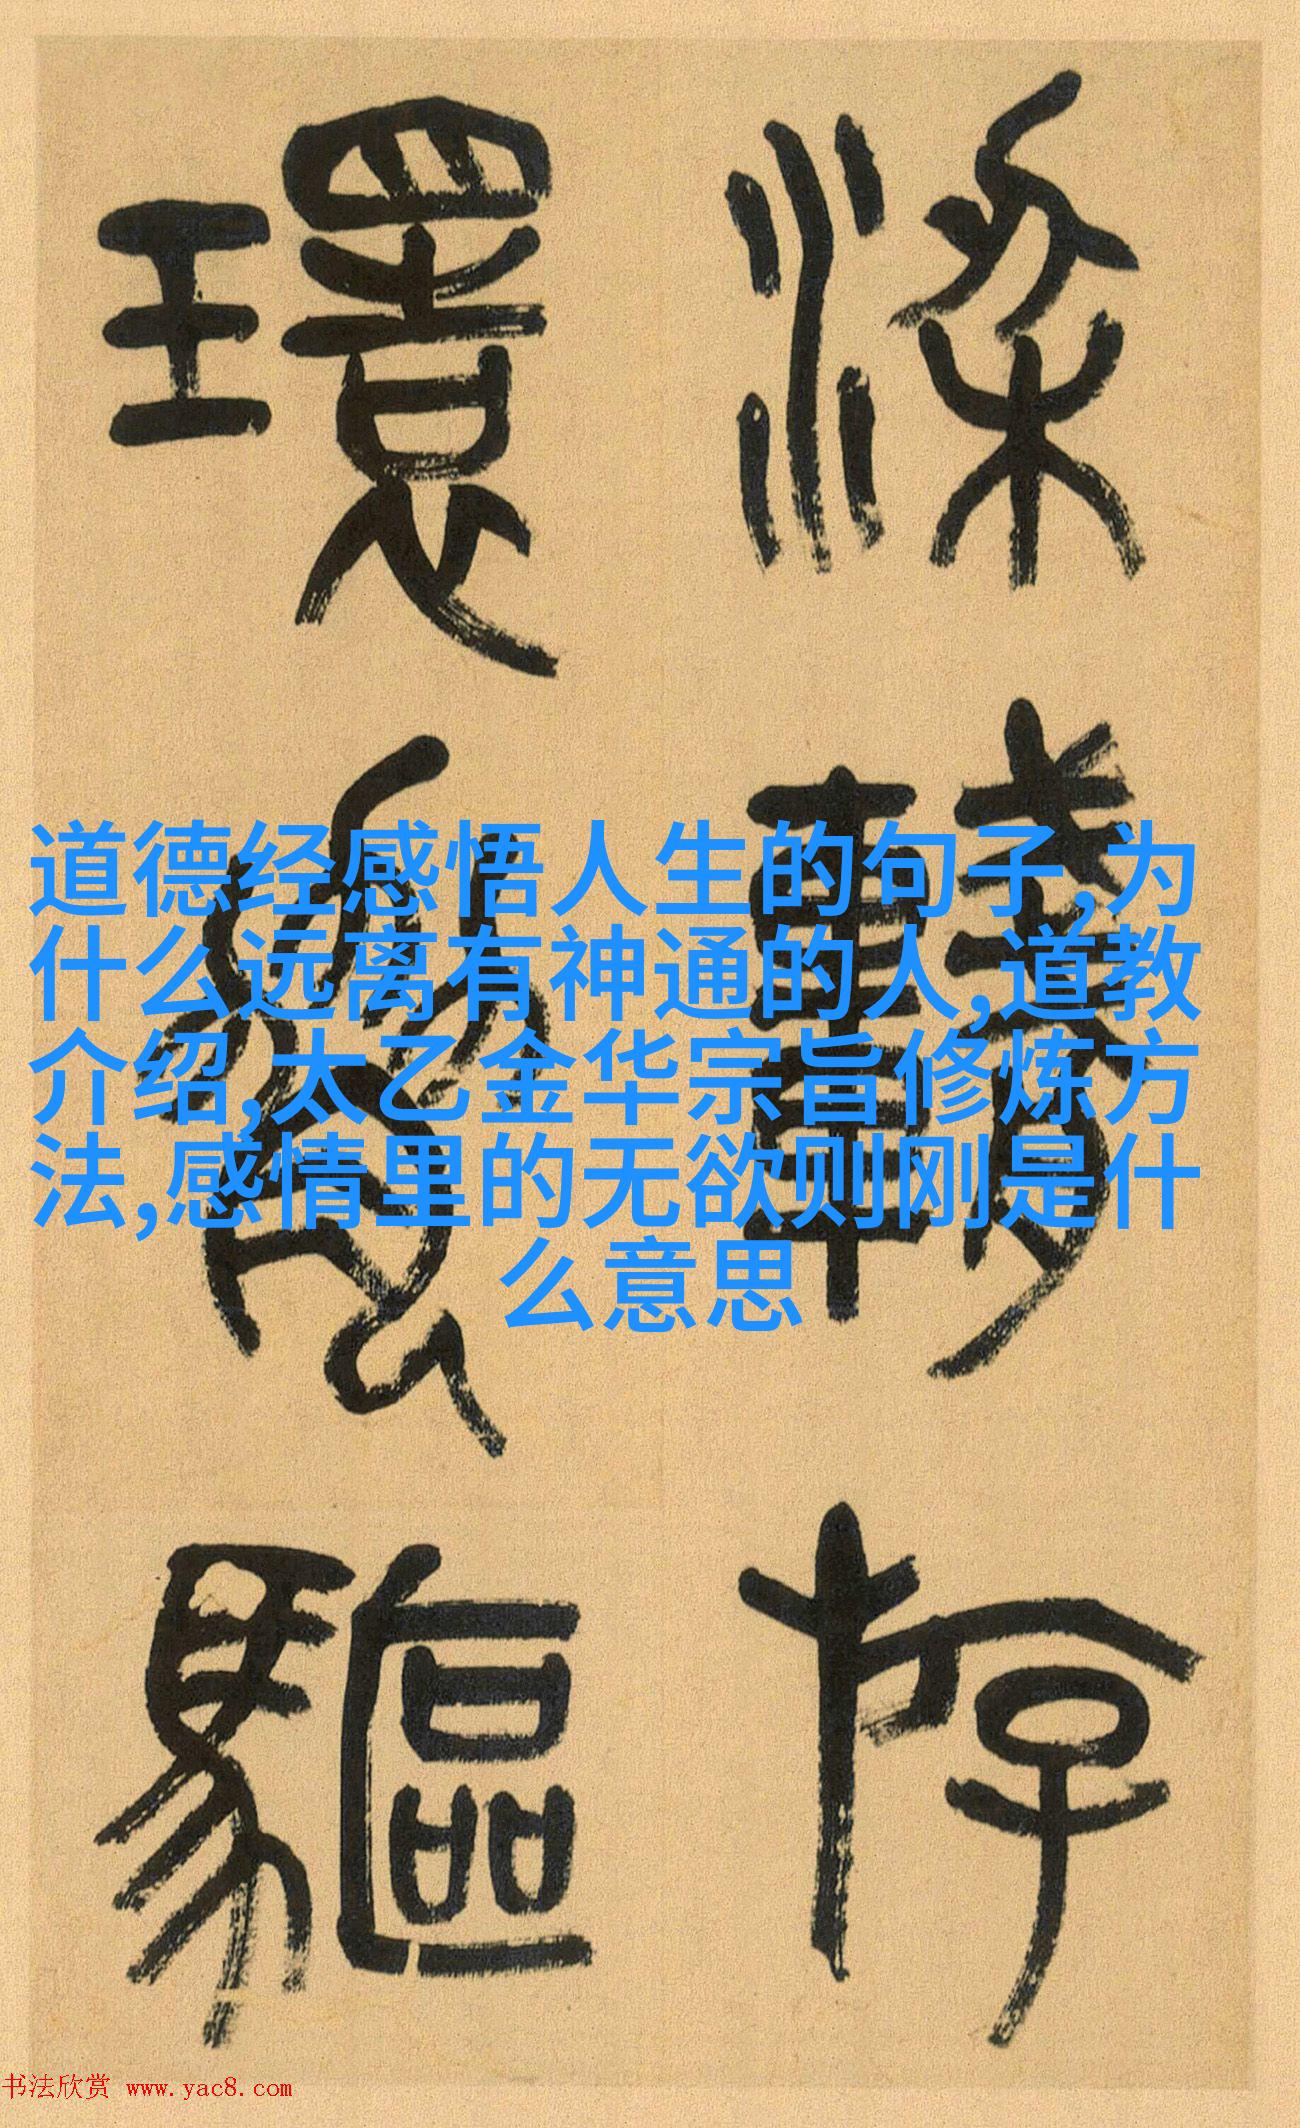 道德经感悟人生的句子,为
什么远离有神通的人,道教
介绍,太乙金华宗旨修炼方
法,感情里的无欲则刚是什
么意思
存
環
驅
书法欣赏 www.yac8.com